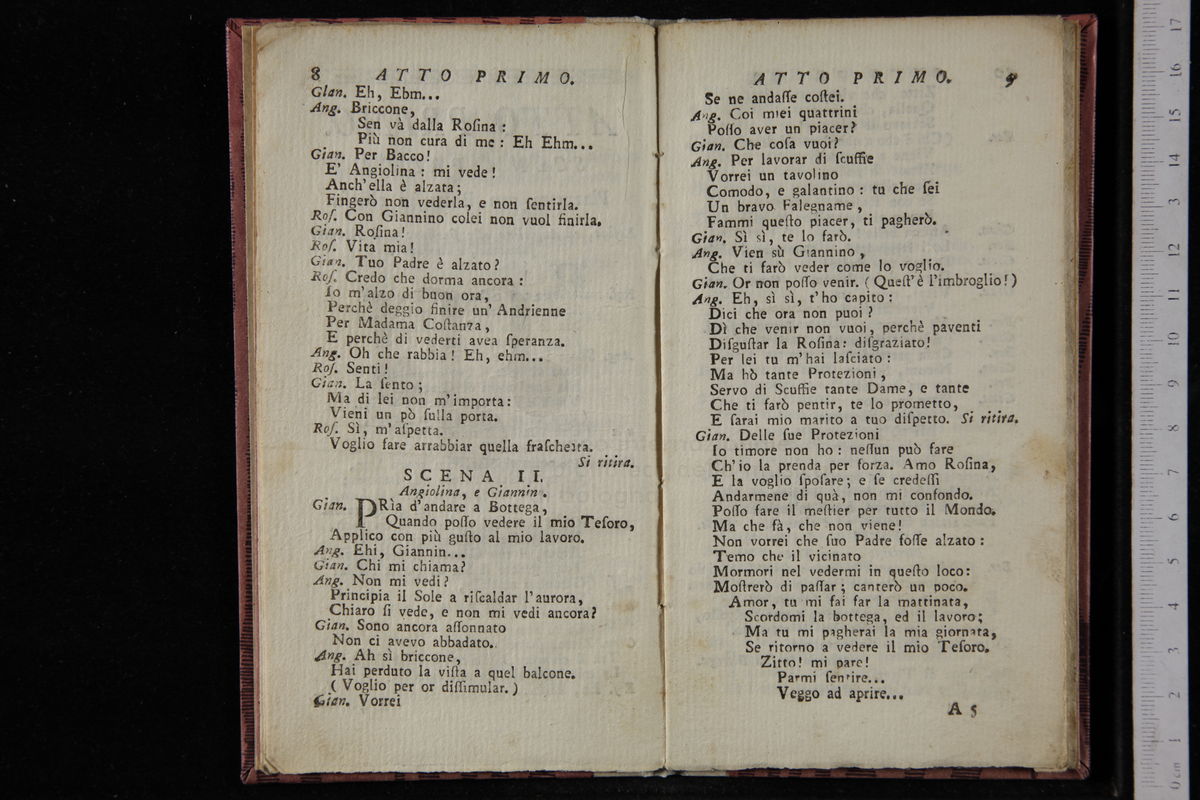 8 ATTO PRIMO.
Gian. Eh, Ebm...
Ang. Briccone,
Sen và dalla Roſina :
Più non cura di me : Eh Ehm...
Gian. Per Bacco!
E' Angiolina : mi vede !
Anch'ella è alzata ;
Fingerò non vederla, e non ſentirla.
Roſ. Con Giannino colei non vuol finirla.
Gian. Roſina!
Roſ. Vita mia!
Gian. Tuo Padre è alzato?
Roſ. Credo che dorma ancora :
Io m'alzo di buon ora,
Perchè deggio finire un' Andrienne
Per Madama Coſtanza,
E perchè di vederti avea ſperanza.
Ang. Oh che rabbia! Eh, ehm...
Roſ. Senti!
Gian. La ſento ;
Ma di lei non m'importa:
Vieni un pò ſulla porta.
Roſ. Sì, m'aſpetta.
Voglio fare arrabbiar quella fraſchetta.
Si ritira.
SCENA II.
Angiolina, e Giannin.
Gian. PRìa d'andare a Bottega,
Quando poſſo vedere il mio Teſoro,
Applico con più guſto al mio lavoro.
Ang. Ehi, Giannin...
Gian. Chi mi chiama?
Ang. Non mi vedi?
Principia il Sole a riſcaldar l'aurora,
Chiaro ſi vede, e non mi vedi ancora?
Gian. Sono ancora aſſonnato
Non ci avevo abbadato.
Ang. Ah sì briccone,
Hai perduto la viſta a quel balcone.
( Voglio per or diſſimular. )
Gian. Vorrei
ATTO PRIMO. 9
Se ne andaſſe coſtei.
Ang. Coi miei quattrini
Poſſo aver un piacer?
Gian. Che coſa vuoi?
Ang. Per lavorar di ſcuffie
Vorrei un tavolino
Comodo, e galantino : tu che ſei
Un bravo Falegname,
Fammi queſto piacer, ti pagherò.
Gian. Sì sì, te lo farò.
Ang. Vien sù Giannino,
Che ti farò veder come lo voglio.
Gian. Or non poſſo venir. ( Queſt'è l'imbroglio! )
Ang. Eh, sì sì, t'ho capito :
Dici che ora non puoi ?
Dì che venir non vuoi, perchè paventi
Diſguſtar la Roſina: diſgraziato!
Per lei tu m'hai laſciato :
Ma hò tante Protezioni,
Servo di Scuffie tante Dame, e tante
Che ti farò pentir, te lo prometto,
E ſarai mio marito a tuo diſpetto. Si ritira.
Gian. Delle ſue Protezioni
Io timore non ho : neſſun può fare
Ch'io la prenda per forza. Amo Roſina,
E la voglio ſpoſare ; e ſe credeſſi
Andarmene di quà, non mi confondo.
Poſſo fare il meſtier per tutto il Mondo.
Ma che fà, che non viene!
Non vorrei che ſuo Padre foſſe alzato :
Temo che il vicinato
Mormori nel vedermi in queſto loco:
Moſtrerò di paſſar ; canterò un poco.
Amor, tu mi fai far la mattinata,
Scordomi la bottega, ed il lavoro;
Ma tu mi pagherai la mia giornata,
Se ritorno a vedere il mio Teſoro.
Zitto! mi pare!
Parmi ſentire...
Veggo ad aprire...
A 5
17
16
15
14
13
12
11
10
9
8
7
6
5
4
3
2
1
0 cm